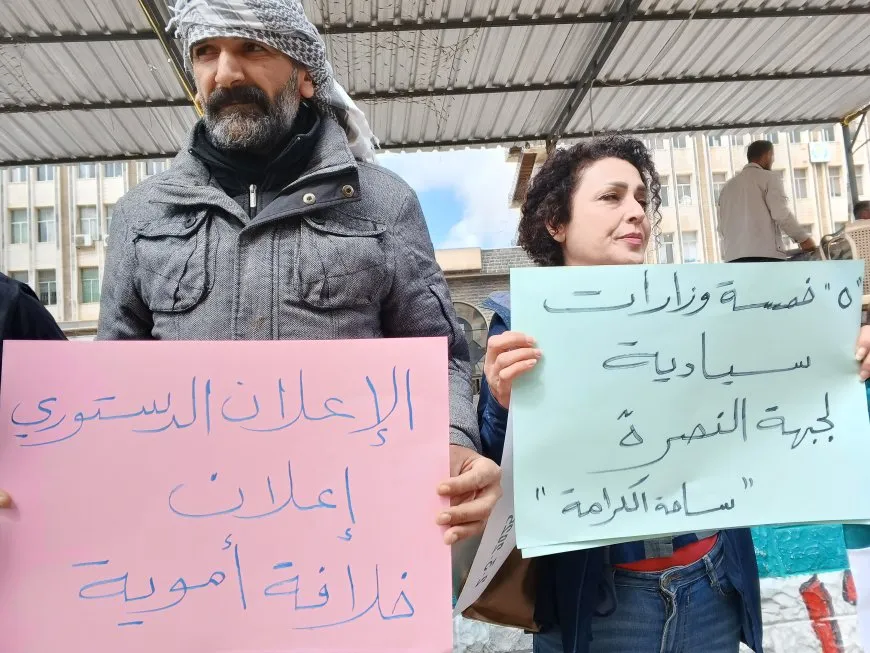 الإعلان الدستوري
إعلان
خلافة أموية
"٥" خمسة وزارات
سيادية
لجبهة النصرة
"ساحة الكرامة"